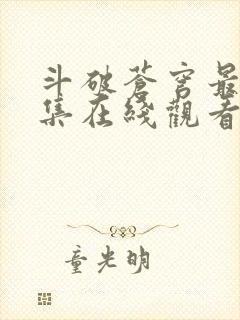 斗破苍穹最
集在线觀看
童光明